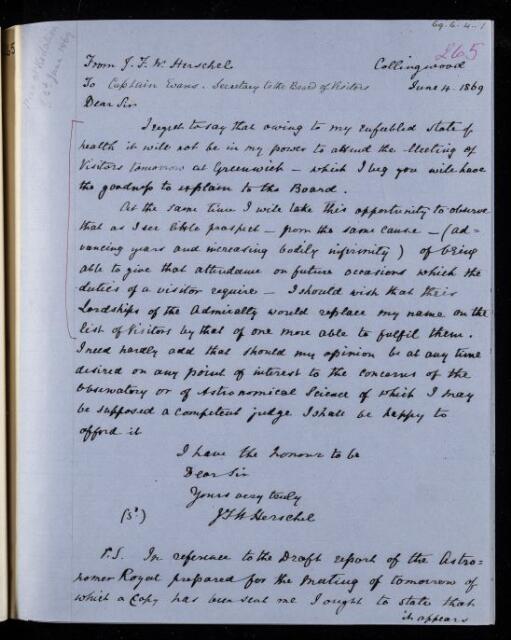 69-6-4-1
265
From J. F. W. Herschel Collingwood
To Captain Evans. Secretary to the Board of Visitors June 4. 1869
Dear Sir
I regret to say that owing to my enfeebled state of
health it will not be in my power to attend the Meeting of
Visitors tomorrow at Greenwich – which I beg you will have
the goodness to explain to the Board.
At the same time I will take this opportunity to observe
that as I see little prospect – from the same cause – (ad-
vancing years and increasing bodily infirmity) of being
able to give that attendance on future occasions which the
duties of a visitor require – I should wish that their
Lordships of the Admiralty would replace my name on the
list of Visitors by that of one more able to fulfil them.
I need hardly add that should my opinion be at any time
desired on any point of interest to the concerns of the
Observatory or of Astronomical Science of which I may
be supposed a competent judge I shall be happy to
afford it
I have the honour to be
Dear Sir
Yours very truly
(Sd) J F W Herschel
P.S. In reference to the Draft report of the Astro=
nomer Royal prepared for the meeting of tomorrow of
which a Copy has been sent me I ought to state that
it appears